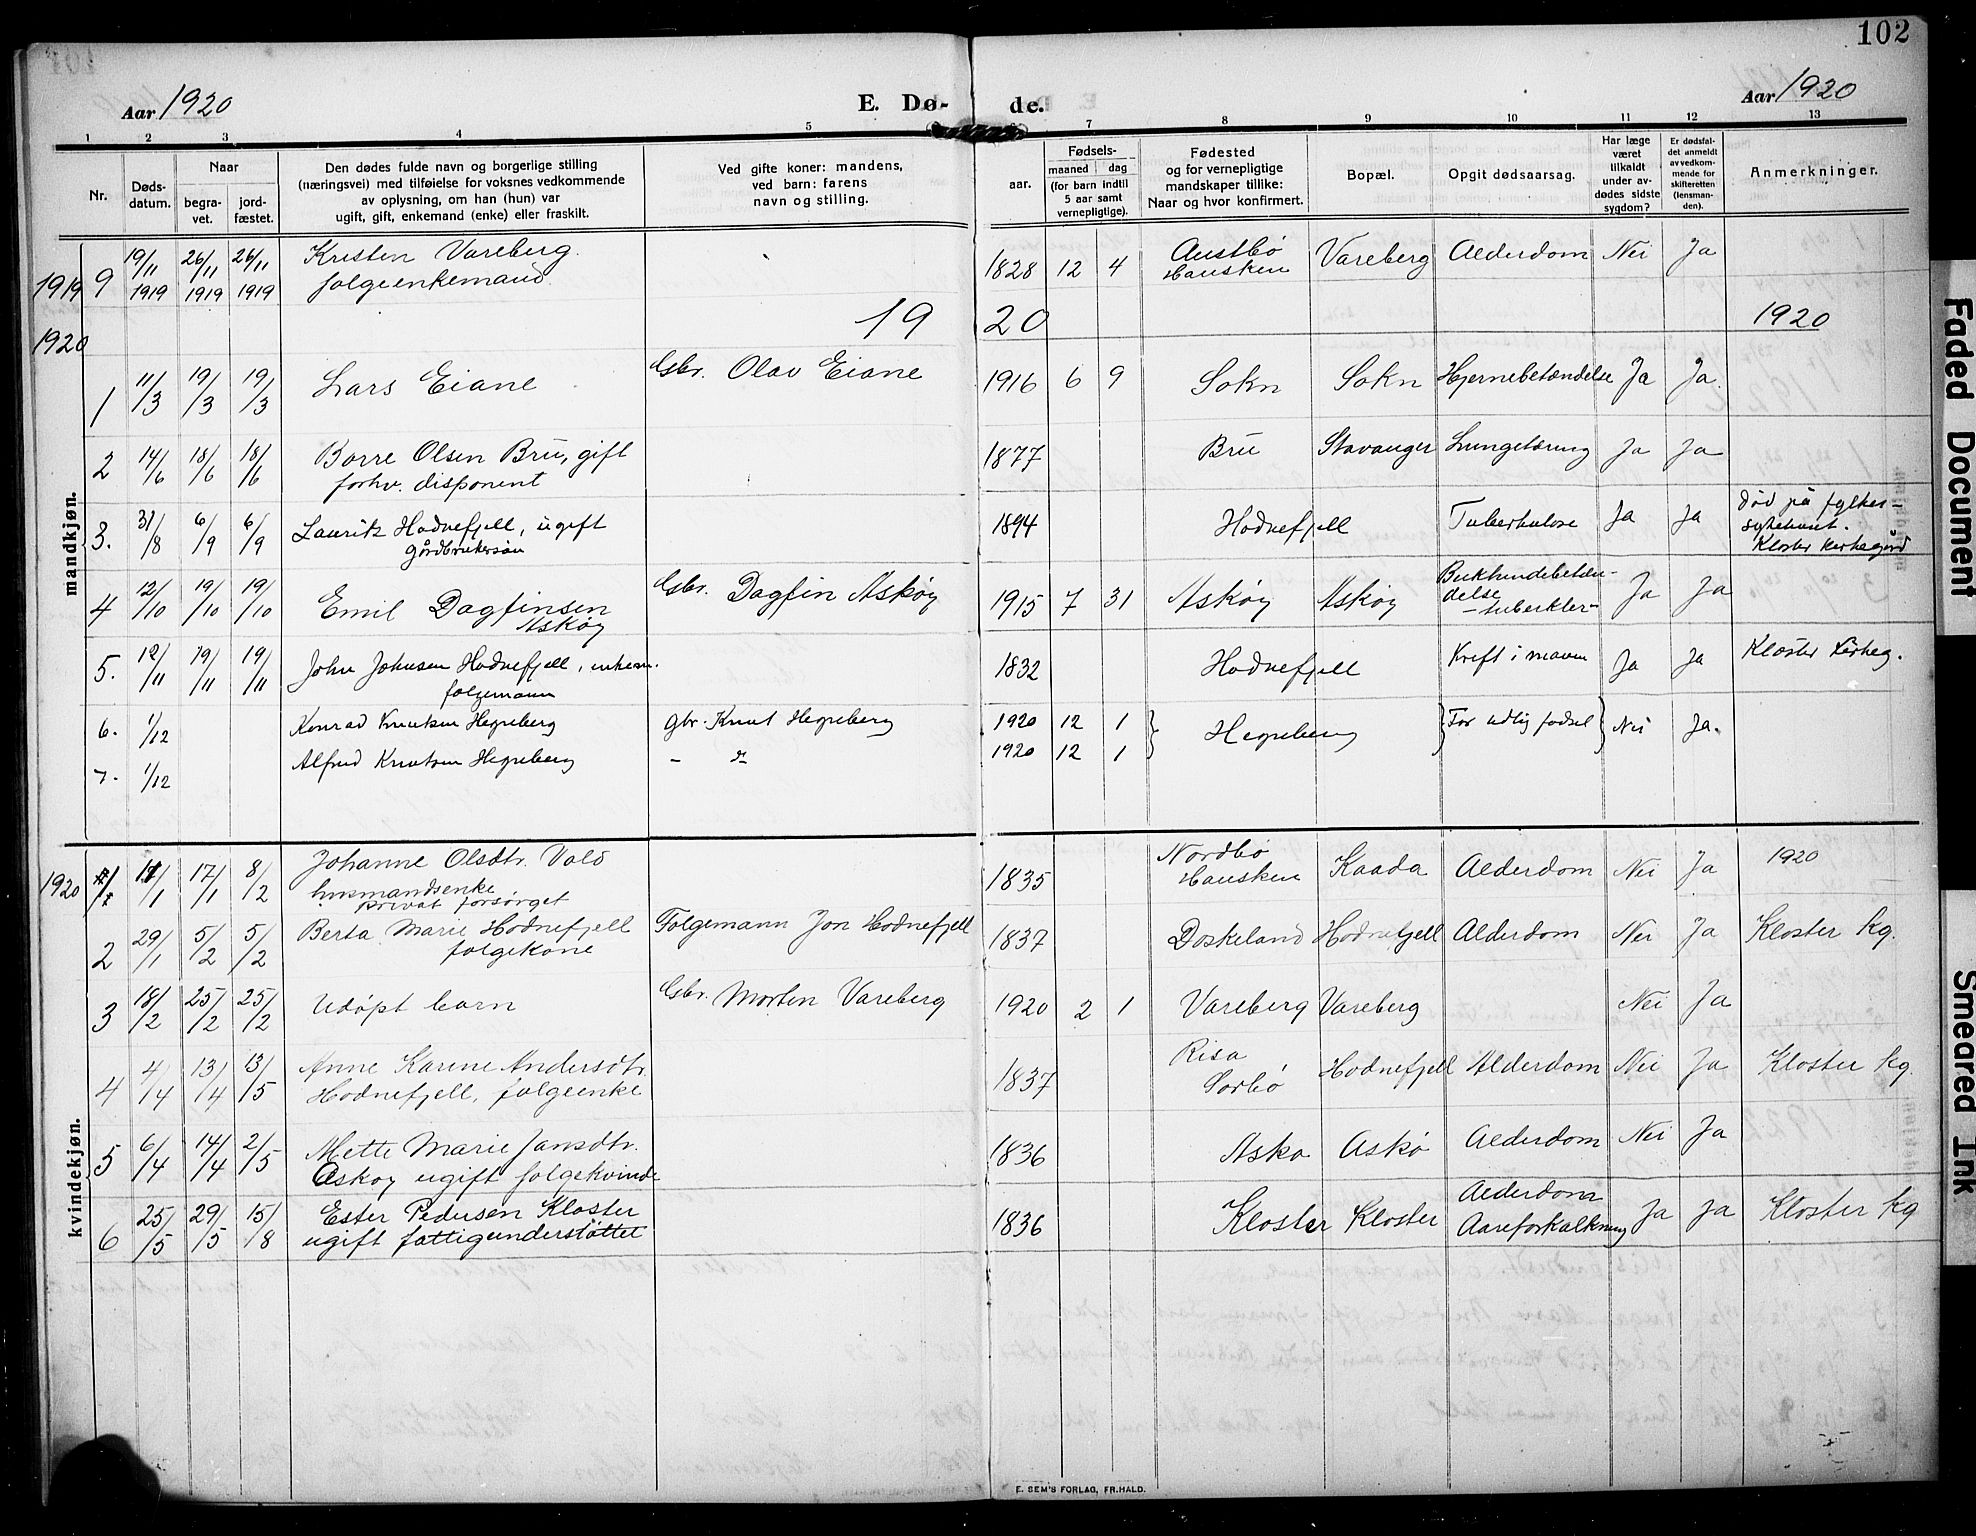 102
Aar 1920
E. Dø-
de.
Aar 1920
1 2 3 4 5 7 8 9 10 11 12 13
Nr.
Døds-
datum.
Naar
begra-
vet.
jord-
fæstet.
Den dødes fulde navn og borgerlige stilling
(næringsvei) med tilføielse for voksnes vedkommende
av oplysning, om han (hun) var
ugift, gift, enkemand (enke) eller fraskilt.
Ved gifte koner: mandens,
ved barn: farens
navn og stilling.
Fødsels-
aar.
maaned dag
(for barn indtil
5 aar samt
vernepligtige).
Fødested
og for vernepligtige
mandskaper tillike:
Naar og hvor konfirmert.
Bopæl.
Opgit dødsaarsag.
Har læge
været
tilkaldt
under av-
dødes sidste
sygdom?
Er dødsfal-
det anmeldt
av vedkom-
mende for
skifteretten
(lensman-
den).
Anmerkninger.
mandkjøn.
1919 9 19/11 1919 26/11 1919 26/11 1919 Kristen Vareberg
folgeenkemand 1828 12 4 Austbø
Hausken Vareberg Alderdom Nei Ja
1920 19 20 1920
1 11/3 19/3 19/3 Lars Eiane Gbr. Olav Eiane 1916 6 9 Sokn Sokn Hjernebetændelse Ja Ja
2 14/6 18/6 18/6 Borre Olsen Bru, gift
forhv. disponent 1877 Bru Stavanger Lungetæring Ja Ja
3. 31/8 6/9 6/9 Laurits Hodnefjell, ugift
gårdbrukersøn 1894 Hodnefjell Tuberkulose Ja Ja Død på fylkes-
sykehuset.
Kloster kirkegård
4 12/10 19/10 19/10 Emil Dagfinsen
Askøy Gbr. Dagfin Askøy 1915 7 31 Askøy Askøy Bukhindebetæn-
delse
- tuberkler - Ja Ja
5. 12/11 19/11 19/11 John Johnsen Hodnefjell, enkem.
folgemann 1832 Hodnefjell Kreft i maven Ja Ja Kloster kirkeg.
6. 1/12 Konrad Knutsen Hegreberg gbr. Knut Hegreberg 1920 12 1 Hegreberg For tidlig fødsel Nei Ja.
7. 1/12 Alfred Knutsen Hegreberg - " 1920 12 1
kvindekjøn.
1920 1 11/1 17/1 8/2 Johanne Olsdtr. Vold
husmandsenke
privat forsørget 1835 Nordbø
Hausken Kaada Alderdom Nei Ja 1920
2 29/1 5/2 5/2 Berta Marie Hodnefjell
folgekone Folgemann Jon Hodnefjell 1837 Doskeland Hodnefjell Alderdom Nei Ja Kloster kg.
3 18/2 25/2 25/2 Udøpt barn Gbr. Morten Vareberg 1920 2 1 Vareberg Vareberg Nei Ja
4 4/4 13/4 13/5 Anne Karine Andersdtr.
Hodnefjell, folgeenke 1837 Risa
Sørbø Hodnefjell Alderdom Nei Ja Kloster kg.
5 6/4 14/4 2/5 Mette Marie Jansdtr.
Askøy ugift folgekvinde 1836 Askø Askø Alderdom Nei Ja
6 25/5 29/5 15/8 Ester Pedersen Kloster
ugift fattigunderstøttet 1836 Kloster Kloster Alderdom
Aareforkalkning Ja Ja Kloster kg
E. SEM'S FORLAG, FR.HALD.
Faded Document
Smeared Ink